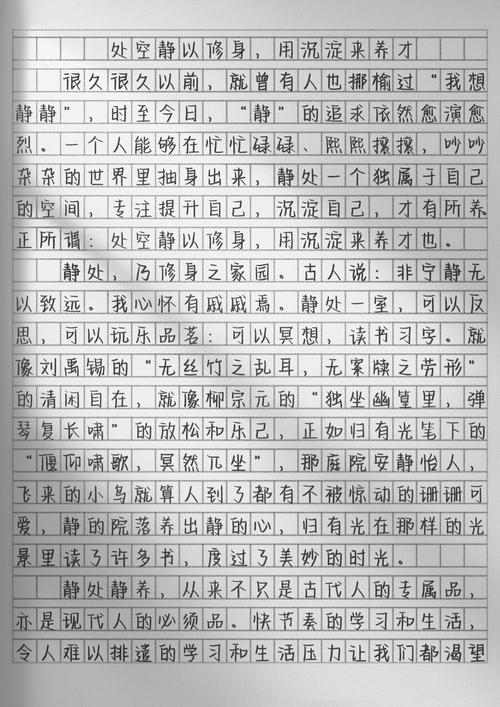 处空静以修身，用沉淀来养才
很久很久以前，就曾有人也揶揄过“我想
静静”，时至今日，“静”的追求依然愈演愈
烈。一个人能够在忙忙碌碌、熙熙攘攘，吵吵
杂杂的世界里抽身出来，静处一个独属于自己
的空间，专注提升自己，沉淀自己，才有所养。
正所谓：处空静以修身，用沉淀来养才也。
静处，乃修身之家园。古人说：非宁静无
以致远。我心怀有戚戚焉。静处一室，可以反
思，可以玩乐品茗；可以冥想，读书习字。就
像刘禹锡的“无丝竹之乱耳，无案牍之劳形”
的清闲自在，就像柳宗元的“独坐幽篁里，弹
琴复长啸”的放松和乐己，正如归有光笔下的
“偃仰啸歌，冥然兀坐”，那庭院安静怡人，
飞来的小鸟就算人到了都有不被惊动的珊珊可
爱，静的院落养出静的心，归有光在那样的光
景里读了许多书，度过了美妙的时光。
静处静养，从来不只是古代人的专属品，
亦是现代人的必须品。快节奏的学习和生活，
令人难以排遣的学习和生活压力让我们都渴望